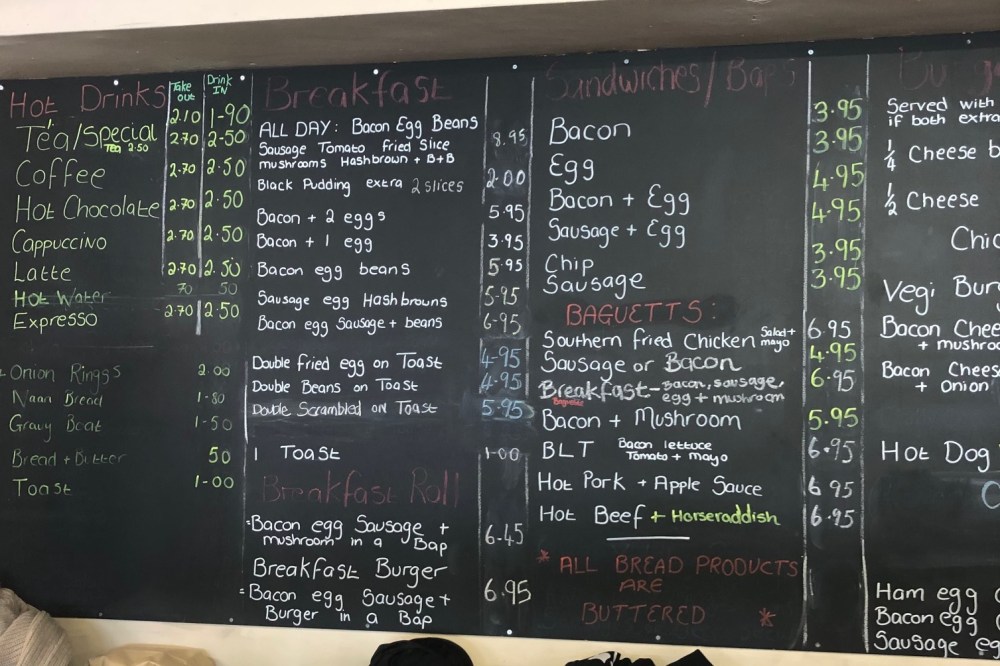 Hot Drinks Take out Drink IN
Tea/special 2.10 1-90
Tea 2.50 2.70 2-50
Coffee 2.70 2.50
Hot Chocolate 2.70 2.50
Cappuccino 2.70 2.50
Latte 2.70 2.50
Hot Water 70 50
Expresso 2.70 2.50
Onion Rings 2.00
Naan Bread 1-80
Gravy Boat 1-50
Bread + Butter 50
Toast 1-00
Breakfast
ALL DAY: Bacon Egg Beans
Sausage Tomato fried Slice 8.95
mushrooms Hashbrown + B+B
Black Pudding extra 2 slices 2.00
Bacon + 2 eggs 5.95
Bacon + 1 egg 3.95
Bacon egg beans 5.95
Sausage egg Hashbrowns 5.95
Bacon egg Sausage + beans 6-95
Double fried egg on Toast 4-95
Double Beans on Toast 4.95
Double Scrambled on Toast 5.95
1 Toast 1-00
Breakfast Roll
Bacon egg Sausage +
mushroom in a Bap 6-45
Breakfast Burger
= Bacon egg Sausage + 6.95
Burger in a Bap
Sandwiches/Baps
Bacon 3.95
Egg 3.95
Bacon + Egg 4.95
Sausage + Egg 4.95
Chip 3.95
Sausage 3.95
BAGUETTS:
Southern fried Chicken Salad + mayo 6.95
Sausage or Bacon 4.95
Breakfast - Bacon, sausage, 6.95
egg + mushroom
Bacon + Mushroom 5.95
BLT Bacon lettuce 6.95
Tomato + mayo
Hot Pork + Apple Sauce 6.95
Hot Beef + Horseraddish 6.95
* ALL BREAD PRODUCTS
ARE
BUTTERED *
Served with
if both extra
1/4 Cheese b
1/2 Cheese
Chic
Vegi Bur
Bacon Chee
+ mushroo
Bacon Chees
+ onion
Hot Dog
Ham egg
Bacon egg
Sausage eg